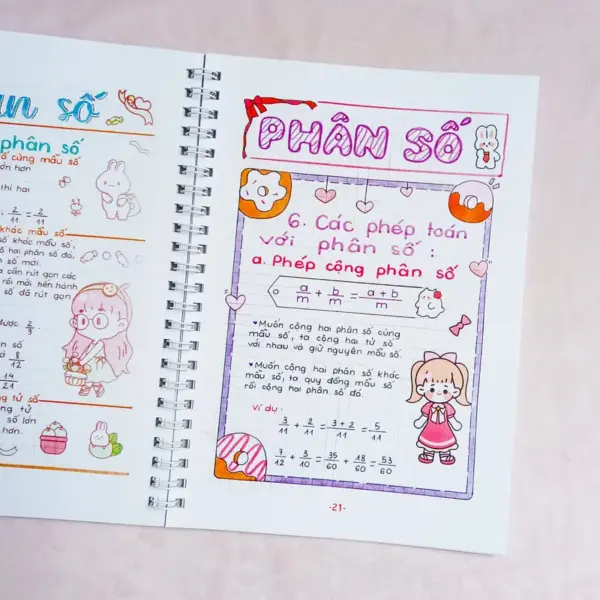 ân số
phân số
số cùng mẫu số
lớn hơn
thì hai
; 2/11 = 2/11
khác mẫu số
số khác mẫu số,
hai phân số đó,
số mới.
cần rút gọn các
rồi mới tiến hành
số đã rút gọn
được 2/3.
8/12
14/21
tử số
tử
số lớn
hơn.
PHÂN SỐ
6. Các phép toán
với phân số :
a. Phép cộng phân số
a/m + b/m = a + b/m
♥Muốn cộng hai phân số cùng
mẫu số, ta cộng hai tử số
với nhau và giữ nguyên mẫu số.
♥Muốn cộng hai phân số khác
mẫu số, ta quy đồng mẫu số
rồi cộng hai phân số đó.
Ví dụ :
3/11 + 2/11 = 3 + 2/11 = 5/11
7/12 + 3/10 = 35/60 + 18/60 = 53/60
-21-